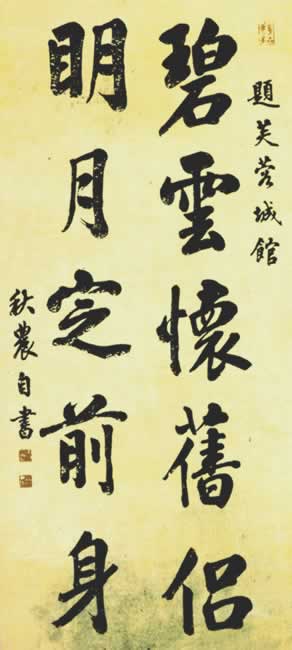 題芙蓉城館
碧雲懷舊侶
明月定前身
秋農自書